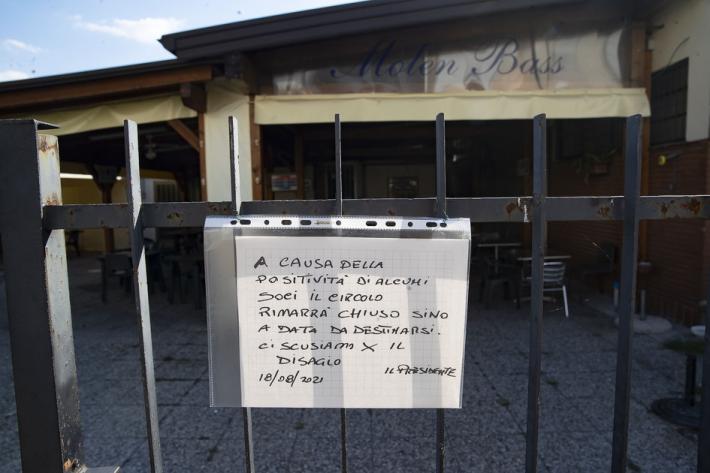 Molen Bass
A CAUSA DELLA
POSITIVITÀ DI ALCUNI
SOCI IL CIRCOLO
RIMARRÀ CHIUSO SINO
A DATA DA DESTINARSI.
CI SCUSIAMO X IL
DISAGIO
IL PRESIDENTE
18/08/2021